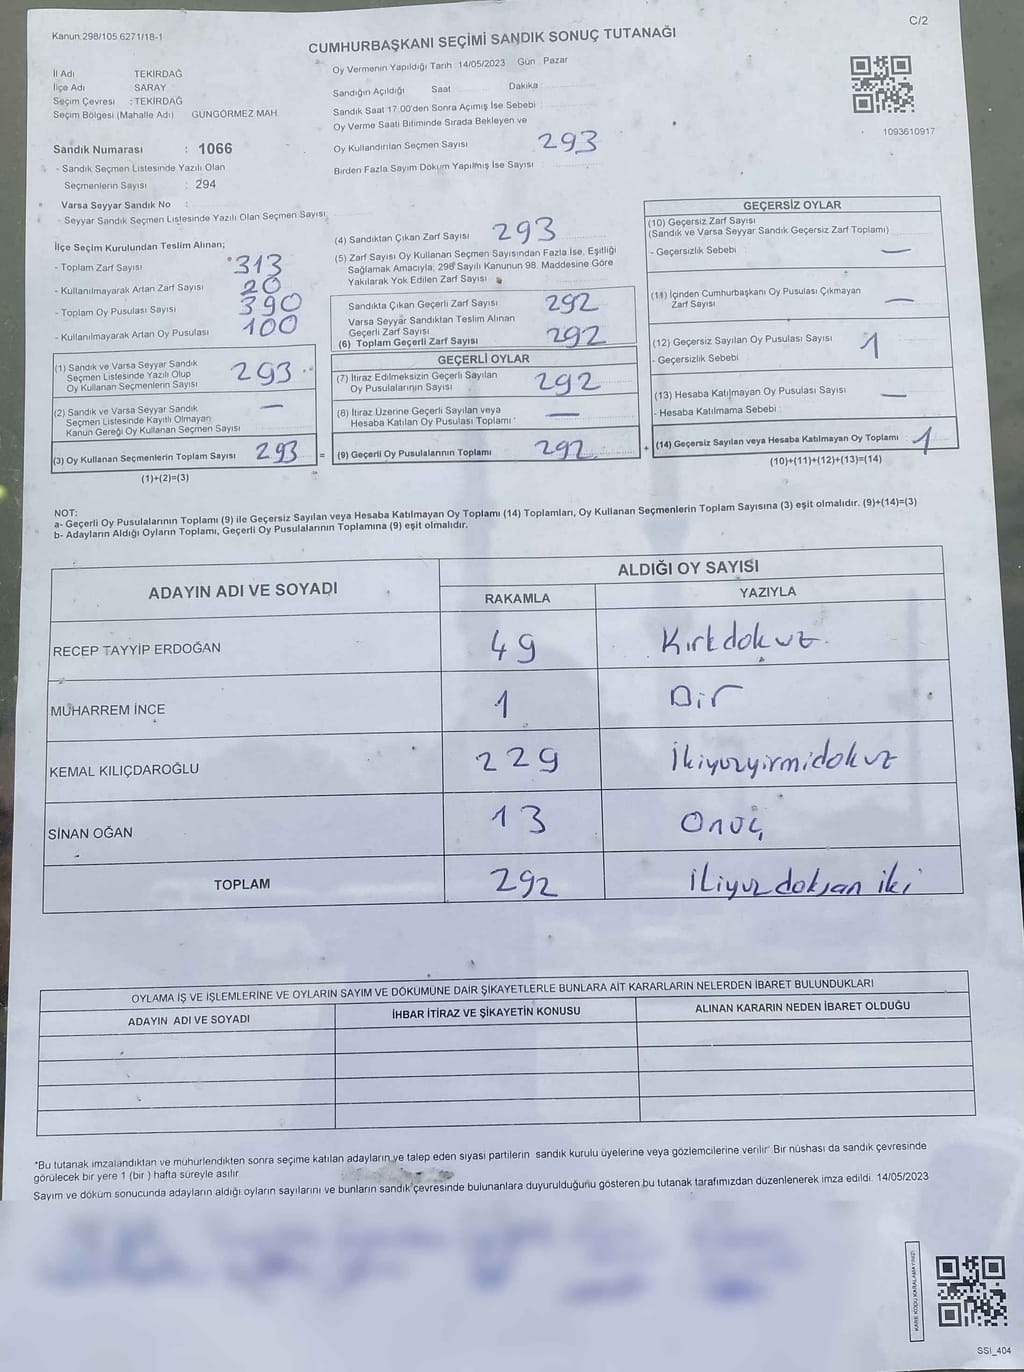 Kanun:298/105.6271/18-1
C/2
CUMHURBAŞKANI SEÇİMİ SANDIK SONUÇ TUTANAĞI
İl Adı TEKİRDAĞ
İlçe Adı SARAY
Seçim Çevresi : TEKİRDAĞ
Seçim Bölgesi (Mahalle Adı) GÜNGÖRMEZ MAH.
Oy Vermenin Yapıldığı Tarih :14/05/2023 Gün : Pazar
Sandığın Açıldığı Saat Dakika
Sandık Saat 17.00'den Sonra Açımış İse Sebebi
Oy Verme Saati Bitiminde Sırada Bekleyen ve
Oy Kullandırılan Seçmen Sayısı 293
Birden Fazla Sayım Döküm Yapılmış İse Sayısı
1093610917
Sandık Numarası : 1066
- Sandık Seçmen Listesinde Yazılı Olan
Seçmenlerin Sayısı : 294
Varsa Seyyar Sandık No :
- Seyyar Sandık Seçmen Listesinde Yazılı Olan Seçmen Sayısı
İlçe Seçim Kurulundan Teslim Alınan;
- Toplam Zarf Sayısı 313
- Kullanılmayarak Artan Zarf Sayısı 20
- Toplam Oy Pusulası Sayısı 390
- Kullanılmayarak Artan Oy Pusulası 100
(1) Sandık ve Varsa Seyyar Sandık
Seçmen Listesinde Yazılı Olup
Oy Kullanan Seçmenlerin Sayısı 293
(2) Sandık ve Varsa Seyyar Sandık
Seçmen Listesinde Kayıtlı Olmayan
Kanun Gereği Oy Kullanan Seçmen Sayısı —
(3) Oy Kullanan Seçmenlerin Toplam Sayısı 293 =
(1)+(2)=(3)
(4) Sandıktan Çıkan Zarf Sayısı 293
(5) Zarf Sayısı Oy Kullanan Seçmen Sayısından Fazla İse, Eşitliği
Sağlamak Amacıyla, 298 Sayılı Kanunun 98. Maddesine Göre
Yakılarak Yok Edilen Zarf Sayısı
Sandıkta Çıkan Geçerli Zarf Sayısı 292
Varsa Seyyar Sandıktan Teslim Alınan
Geçerli Zarf Sayısı
(6) Toplam Geçerli Zarf Sayısı 292
GEÇERLİ OYLAR
(7) İtiraz Edilmeksizin Geçerli Sayılan
Oy Pusulalarının Sayısı 292
(8) İtiraz Üzerine Geçerli Sayılan veya
Hesaba Katılan Oy Pusulası Toplamı —
(9) Geçerli Oy Pusulalarının Toplamı 292 +
GEÇERSİZ OYLAR
(10) Geçersiz Zarf Sayısı
(Sandık ve Varsa Seyyar Sandık Geçersiz Zarf Toplamı)
- Geçersizlik Sebebi —
(11) İçinden Cumhurbaşkanı Oy Pusulası Çıkmayan
Zarf Sayısı —
(12) Geçersiz Sayılan Oy Pusulası Sayısı 1
- Geçersizlik Sebebi
(13) Hesaba Katılmayan Oy Pusulası Sayısı —
- Hesaba Katılmama Sebebi
(14) Geçersiz Sayılan veya Hesaba Katılmayan Oy Toplamı 1
(10)+(11)+(12)+(13)=(14)
NOT:
a- Geçerli Oy Pusulalarının Toplamı (9) ile Geçersiz Sayılan veya Hesaba Katılmayan Oy Toplamı (14) Toplamları, Oy Kullanan Seçmenlerin Toplam Sayısına (3) eşit olmalıdır. (9)+(14)=(3)
b- Adayların Aldığı Oyların Toplamı, Geçerli Oy Pusulalarının Toplamına (9) eşit olmalıdır.
ADAYIN ADI VE SOYADI
ALDIĞI OY SAYISI
RAKAMLA YAZIYLA
RECEP TAYYİP ERDOĞAN 49 Kırkdokuz
MUHARREM İNCE 1 Bir
KEMAL KILIÇDAROĞLU 229 İkiyuzyirmidokuz
SİNAN OĞAN 13 Onuç
TOPLAM 292 ikiyuzdoksan iki
OYLAMA İŞ VE İŞLEMLERİNE VE OYLARIN SAYIM VE DÖKÜMÜNE DAİR ŞİKAYETLERLE BUNLARA AİT KARARLARIN NELERDEN İBARET BULUNDUKLARI
ADAYIN ADI VE SOYADI İHBAR İTİRAZ VE ŞİKAYETİN KONUSU ALINAN KARARIN NEDEN İBARET OLDUĞU
*Bu tutanak imzalandıktan ve mühürlendikten sonra seçime katılan adayların ve talep eden siyasi partilerin sandık kurulu üyelerine veya gözlemcilerine verilir. Bir nüshası da sandık çevresinde
görülecek bir yere 1 (bir) hafta süreyle asılır.
Sayım ve döküm sonucunda adayların aldığı oyların sayılarını ve bunların sandık çevresinde bulunanlara duyurulduğunu gösteren bu tutanak tarafımızdan düzenlenerek imza edildi. 14/05/2023
KARE KODU KARALAMAYINIZ!
SSI_404